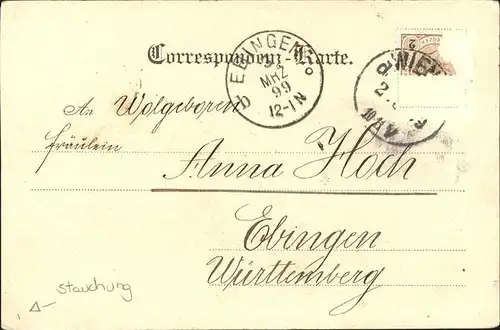 Correspondenz-Karte.
EBINGEN
MRZ
99
12-1N
WIEN
An Wolgeboren
Fräulein
Anna Hoch
Ebingen
Württemberg
Stauchung